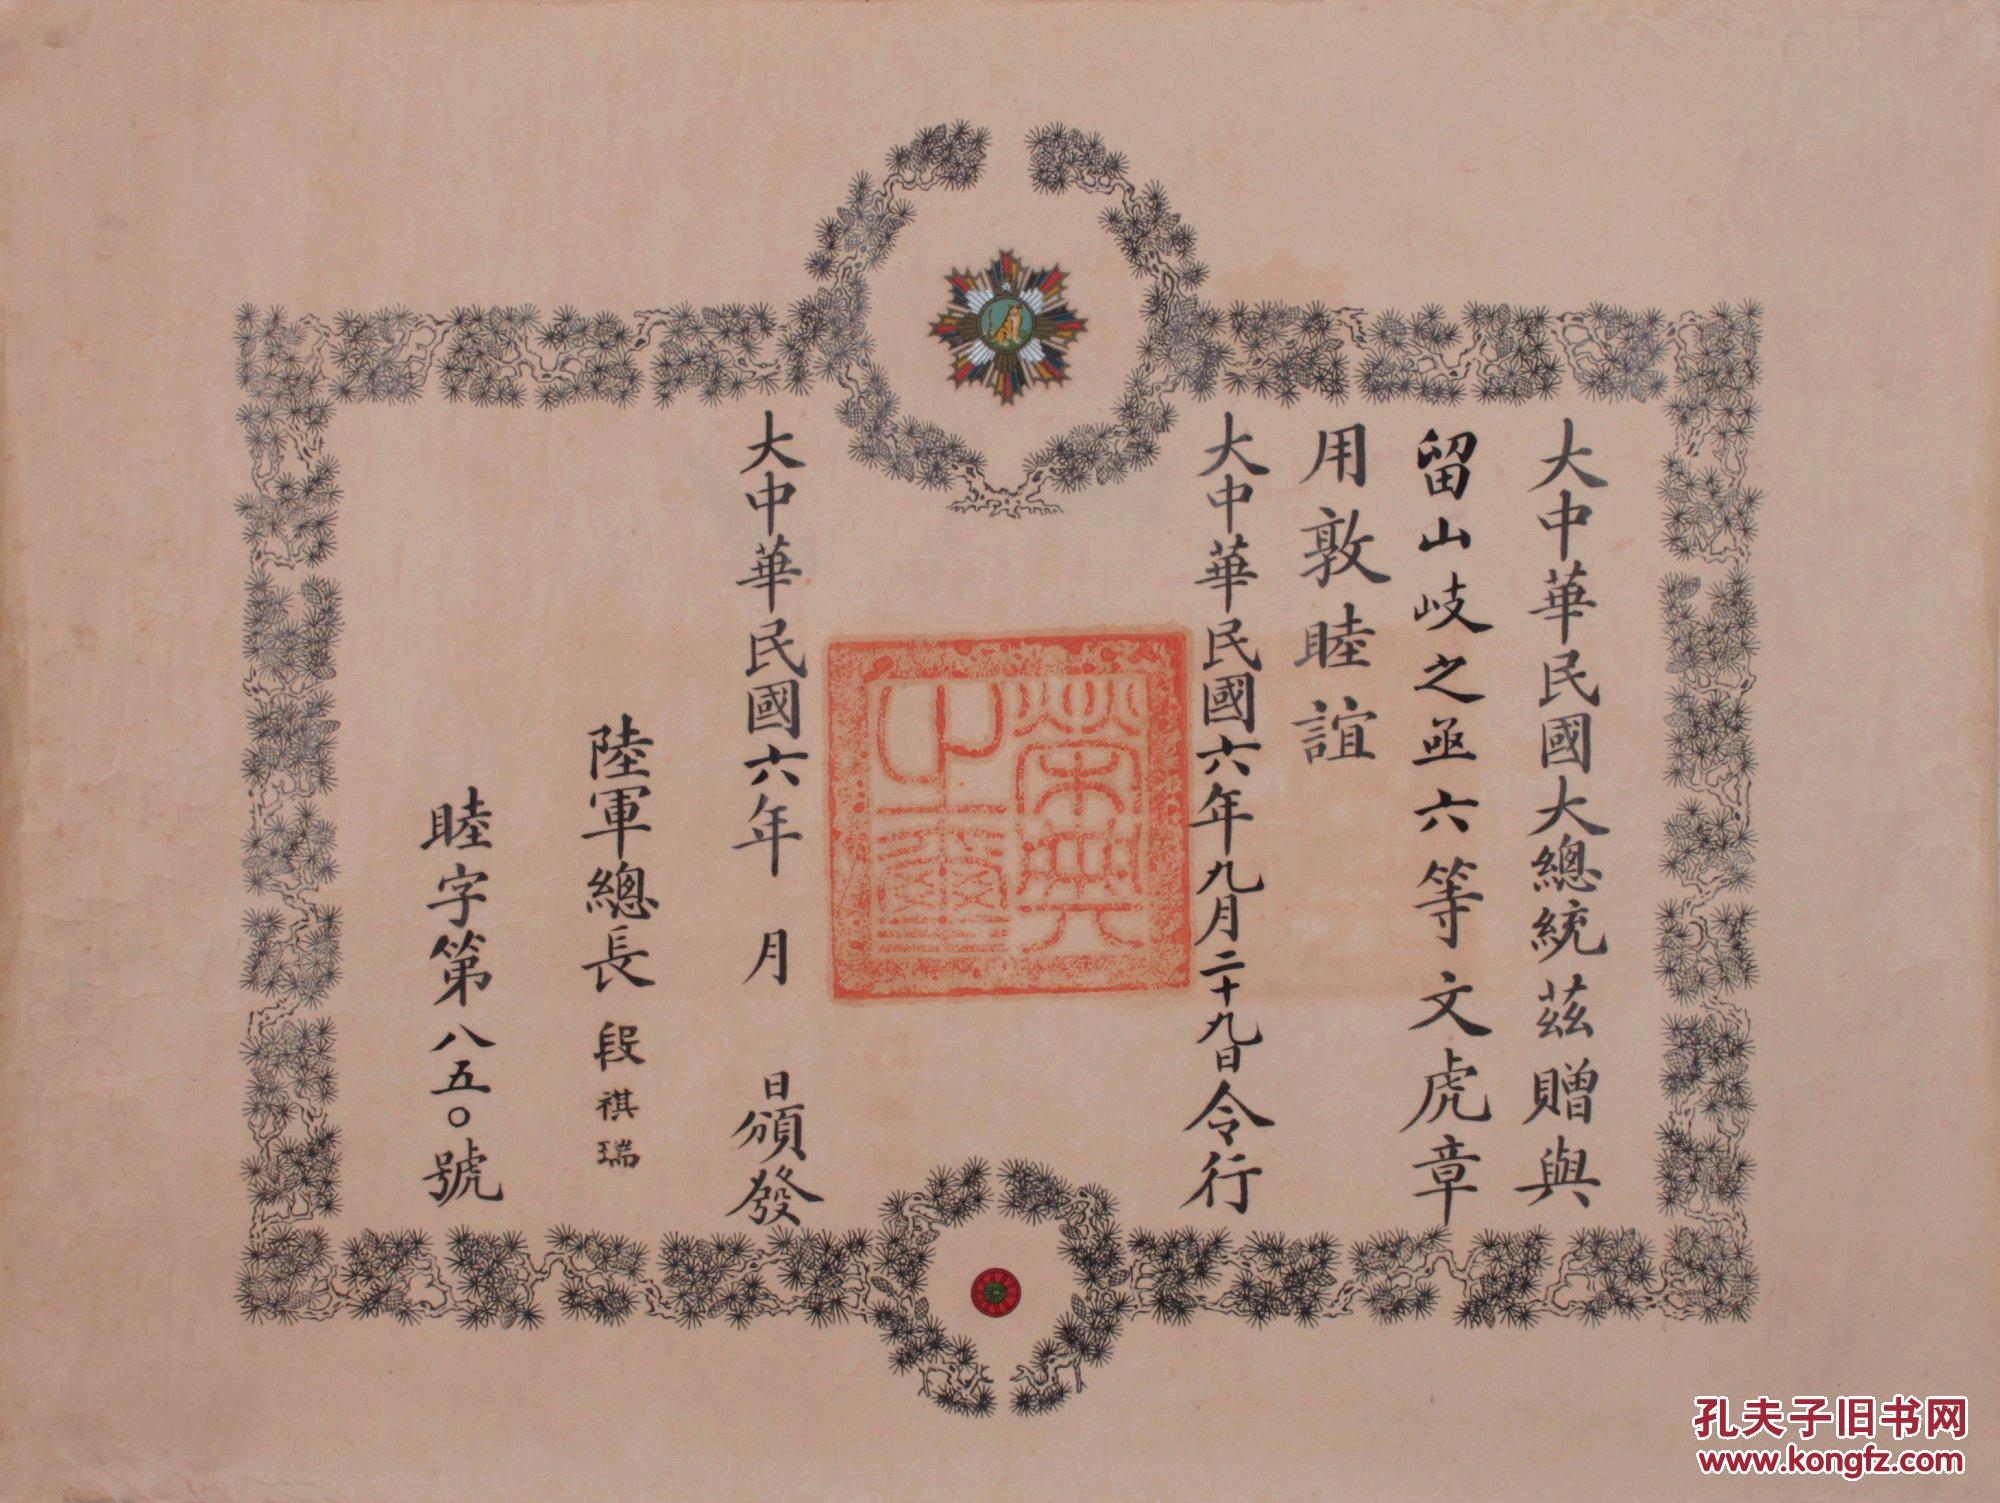 大中華民國大總統茲贈與
留山岐之亟六等文虎章
用敦睦誼
大中華民國六年九月二十九日令行
榮典
之璽
大中華民國六年 月 日頒發
陸軍總長 段祺瑞
睦字第八五〇號
孔夫子旧书网
www.kongfz.com